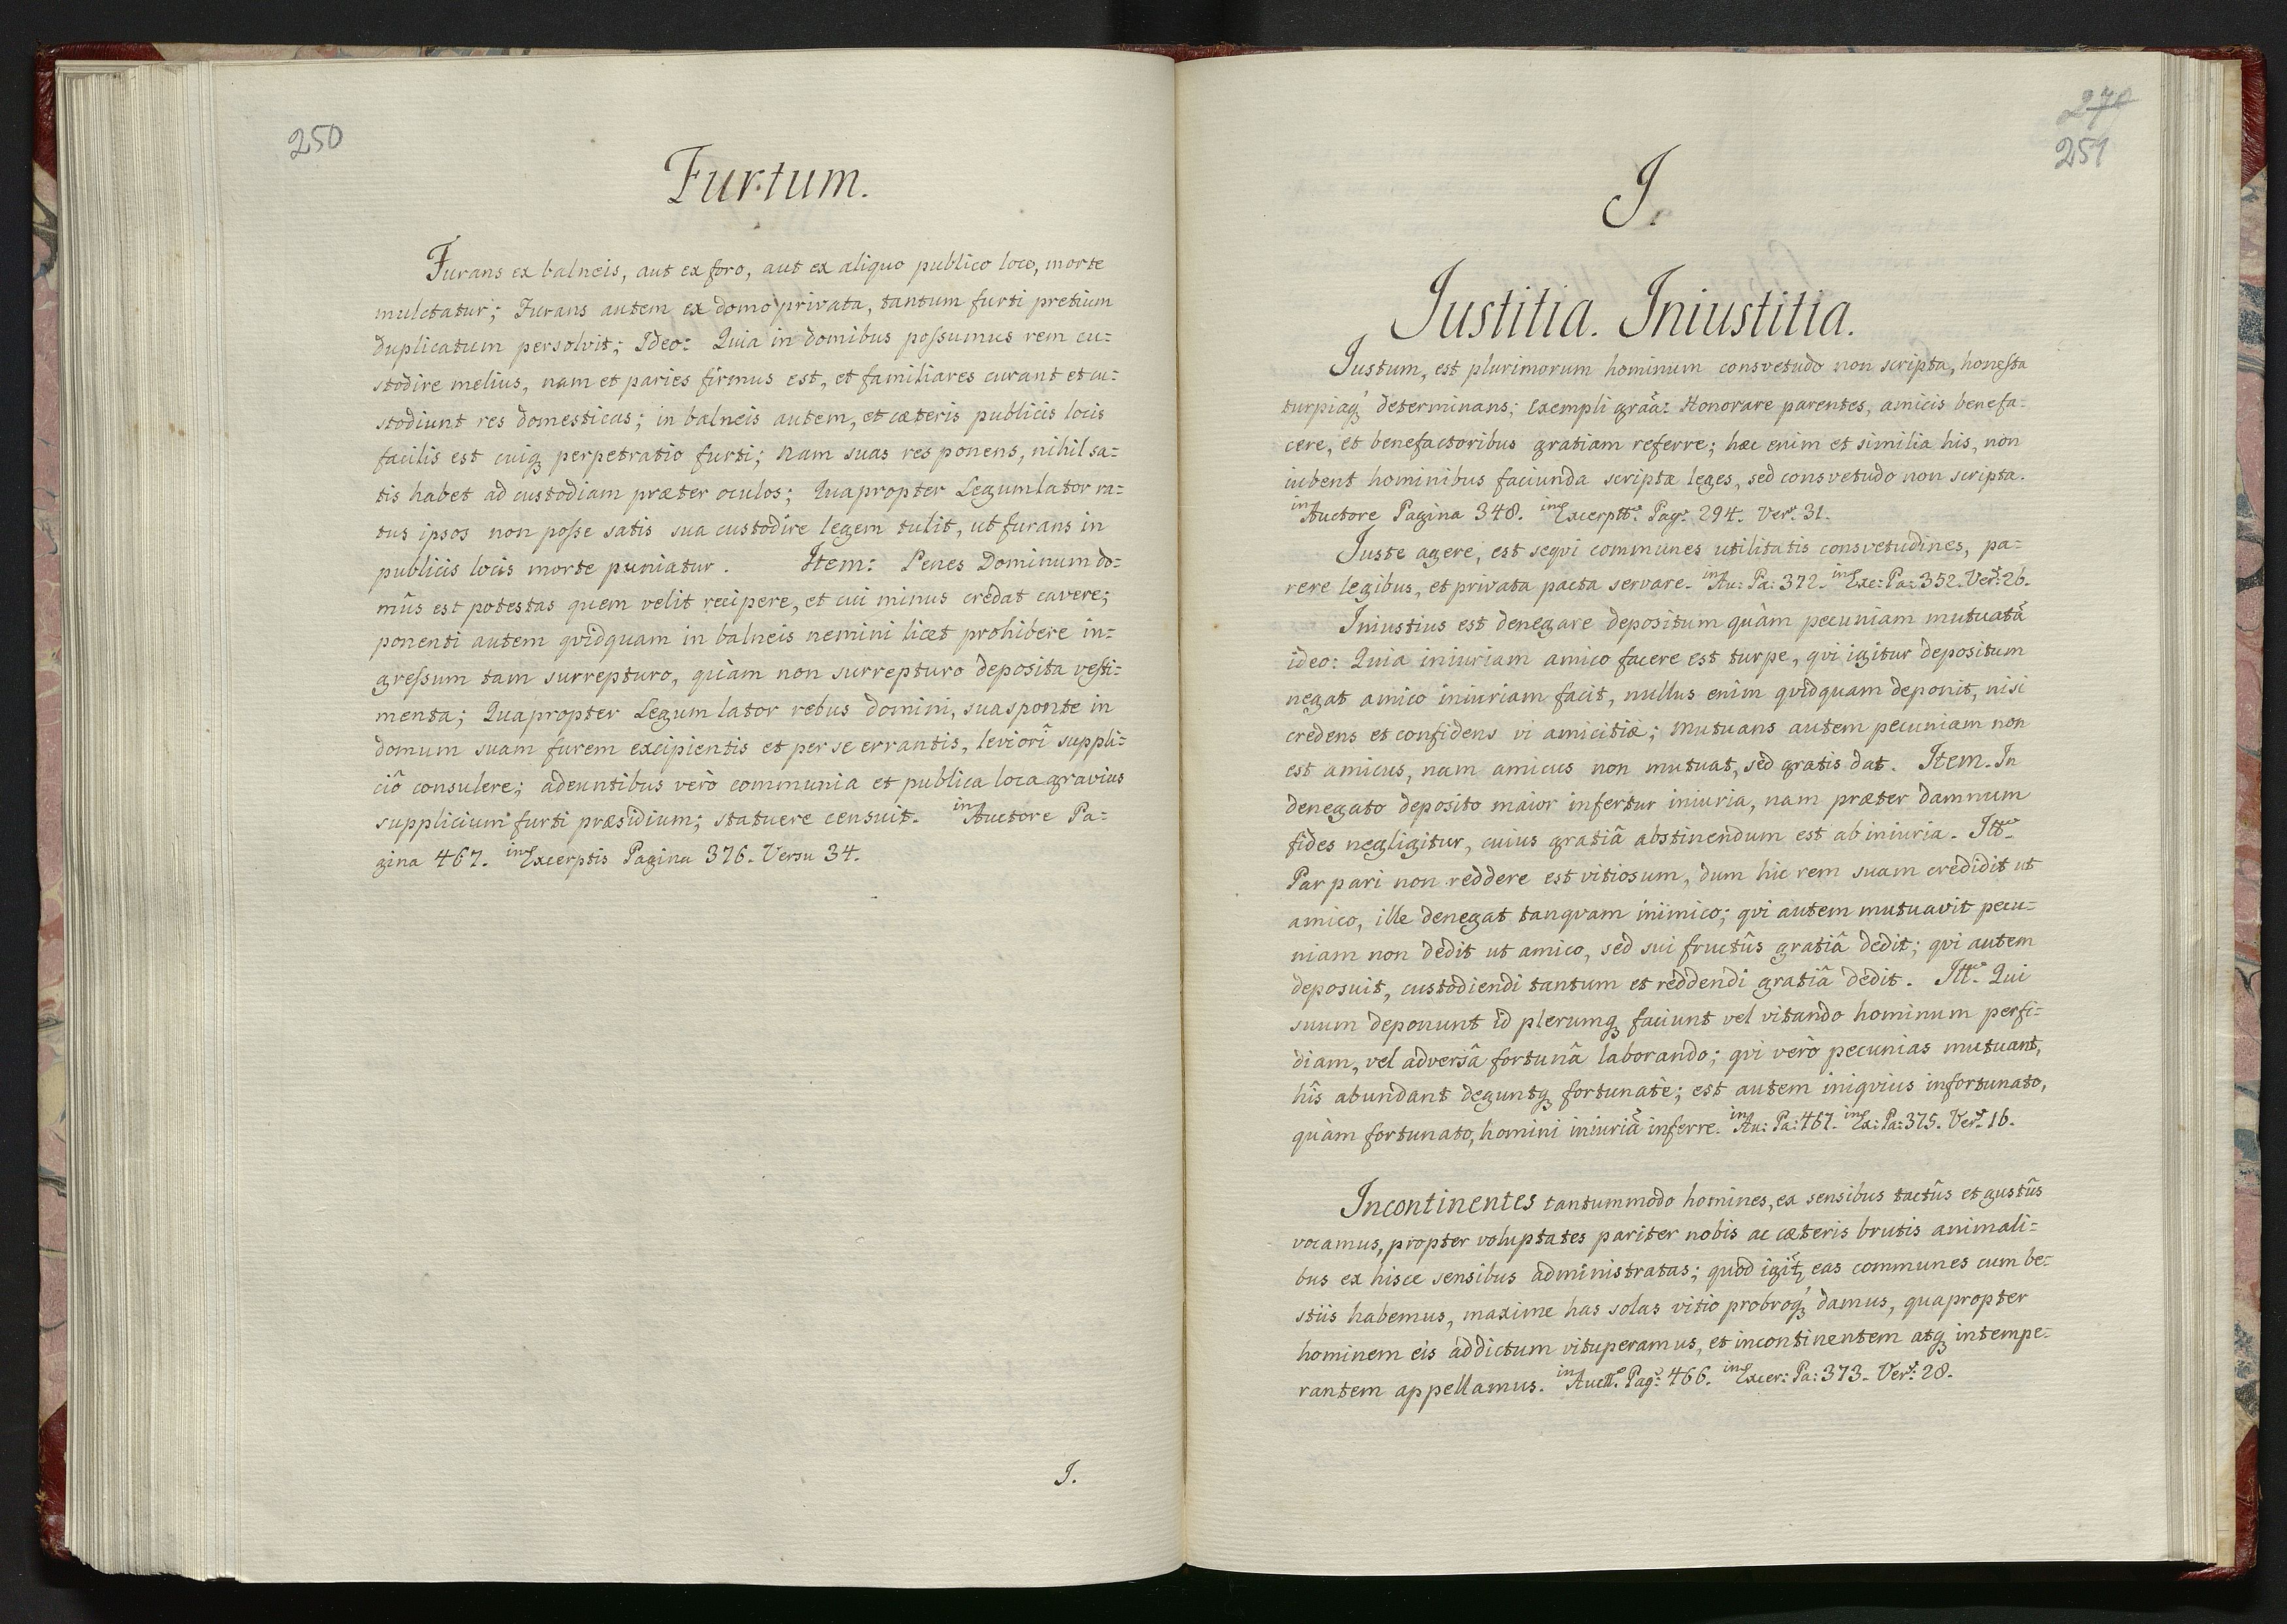 250
Furtum.
Furans ex balneis, aut ex foro, aut ex aliquo publico loco, morte
mulctatur; Furans autem ex domo privata, tantum furti pretium
duplicatum persolvit; Ideo: Quia in domibus poſsumus rem cu=
stodire melius, nam et paries firmus est, et familiares curant et cu=
stodiunt res domesticas; in balneis autem, et cæteris publicis locis
facilis est cuiq₃ perpetratio furti; Nam suas res ponens, nihil sa=
tis habet ad custodiam præter oculos; Quapropter Legumlator ra=
tus ipsos non poſse satis sua custodire legem tulit, ut furans in
publicis locis morte puniatur. Item: Penes Dominum do=
mûs est potestas quem velit recipere, et cui minus credat cavere;
ponenti autem qvidquam in balneis nemini licet prohibere in=
greſsum tam surrepturo, quàm non surrepturo deposita vesti=
menta; Quapropter Legum lator rebus domini, suasponte in
domum suam furem excipientis et per se errantis, leviori suppli=
ciô consulere; adeuntibus verò communia et publica loca gravius
supplicium furti præsidium; statuere censuit. in Auctore Pa=
gina 467. in Excerptis Pagina 376. Versu 34.
I.
270
251
I.
Iustitia. Iniustitia.
Iustum, est plurimorum hominum consvetudo non scripta, honesta
turpiaq₃ determinans; Exempli grãa: Honorare parentes, amicis benefa=
cere, et benefactoribus gratiam referre; hæc enim et similia his, non
iubent hominibus faciunda scriptæ leges, sed consvetudo non scripta.
in Auctore Pagina 348. in Excerptt: Pag: 294. Ver: 31.
Iuste agere, est seqvi communes utilitatis consvetudines, pa=
rere legibus, et privata pacta servare. in Au: Pa: 372. in Exc: Pa: 352. Ver: 26.
Iniustius est denegare depositum quàm pecuniam mutuatã
ideo: Quia iniuriam amico facere est turpe, qvi igitur depositum
negat amico iniuriam facit, nullus enim qvidquam deponit, nisi
credens et confidens vi amicitiæ; Mutuans autem pecuniam non
est amicus, nam amicus non mutuat, sed gratis dat. Item. In
denegato deposito maior infertur iniuria, nam præter damnum
fides negligitur, cuius gratiâ abstinendum est ab iniuria. Itt:
Par pari non reddere est vitiosum, dum hic rem suam credidit ut
amico, ille denegat tanqvam inimico; qvi autem mutuavit pecu=
niam non dedit ut amico, sed sui fructûs gratiâ dedit; qvi autem
deposuit, custodiendi tantum et reddendi gratiâ dedit. Itt: Qui
suum deponunt id plerumq₃ faciunt vel vitando hominum perfi=
diam, vel adversâ fortunâ laborando; qvi verò pecunias mutuant,
hîs abundant deguntq₃ fortunatè; est autem iniqvius infortunato,
quàm fortunato, homini iniuriã inferre. in Au: Pa: 467. in Ex: Pa: 375. Ver: 16.
Incontinentes tantummodo homines, ex sensibus tactûs et gustûs
vocamus, propter voluptates pariter nobis ac cæteris brutis animali=
bus ex hisce sensibus administratas; quod igit̃ eas communes cum be=
stiis habemus, maxime has solas vitio probroq₃ damus, quapropter
hominem eis addictum vituperamus, et incontinentem atq₃ intempe=
rantem appellamus. in Auctt: Pag: 466. in Excer: Pa: 373. Ver: 28.